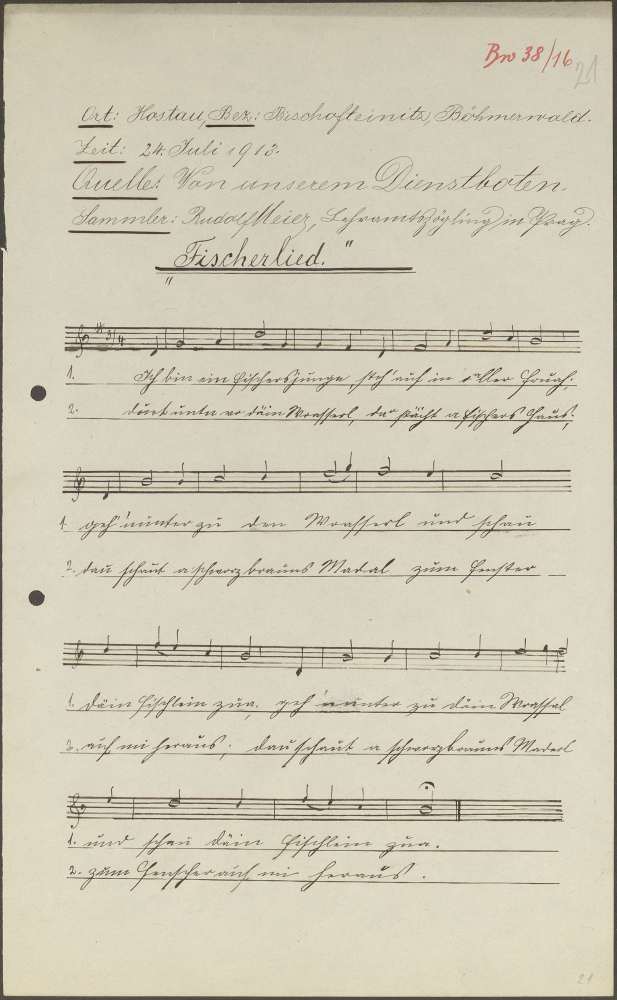 Bro 38/16
21
Ort: Hostau, Bez.: Bischofteinitz, Böhmerwald.
Zeit: 24. Juli 1913.
Quelle: Von unserem Dienstboten.
Sammler: Rudolf Meier, Lehramtszögling in Prag.
"Fischerlied."
3/4
1. Ich bin ein Fischersjunge, steh' auf in aller Fruah;
2. dort unten vo däin Wasserl, da steht a Fischers Haus;
1. geh' nunter zu den Wasserl und schau
2. dau schaut a schworzbrauns Madal zum Fenster
1. däin Fischlein zua. geh' nunter zu däin Wassal
2. auf mi heraus; dau schaut a schworzbrauns Maderl
1. und schau däin Fischlein zua.
2. zum Fenster auf mi heraus.
21